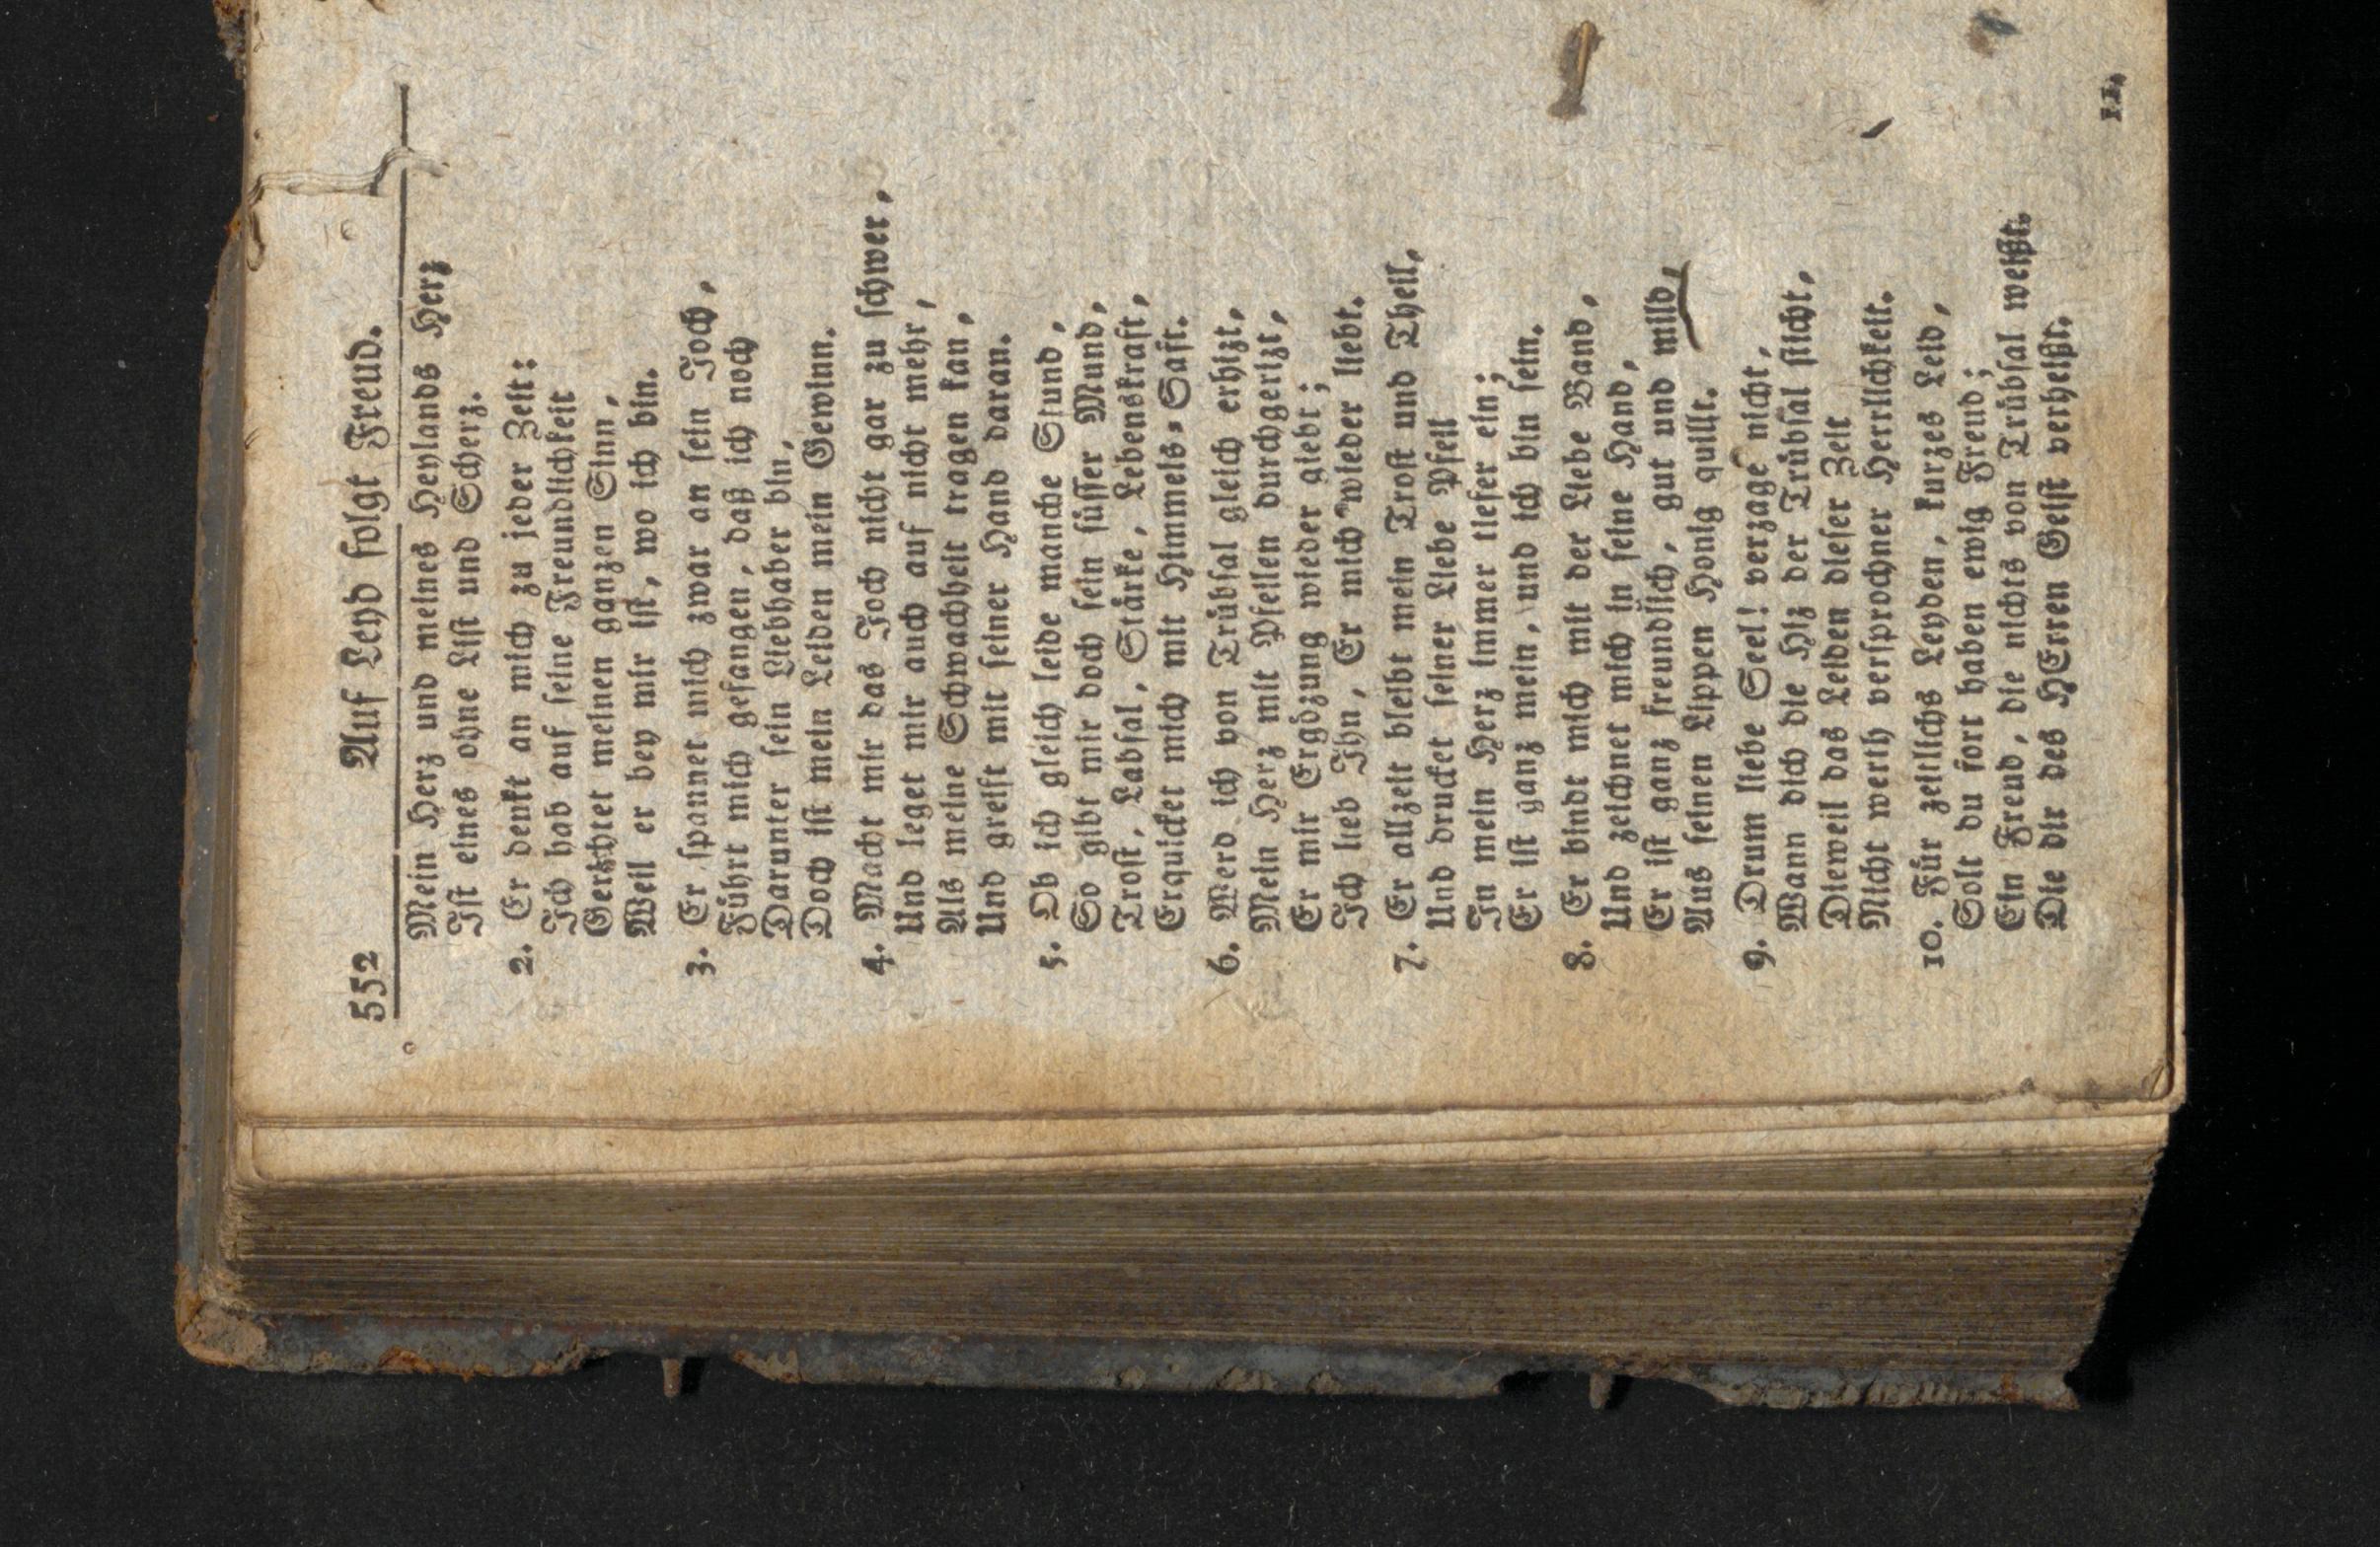 552 Auf Leyd folgt Freud.
Mein Herz und meines Heylands Herz
Ist eines ohne List und Scherz.
2. Er denkt an mich zu jeder Zeit:
Ich hab auf seine Freundlichkeit
Gerichtet meinen ganzen Sinn,
Weil er bey mir ist, wo ich bin.
3. Er spannet mich zwar an sein Joch,
Führt mich gefangen, daß ich noch
Darunter sein Liebhaber bin,
Doch ist mein Leiden mein Gewinn.
4. Macht mir das Joch nicht gar zu schwer,
Und leget mir auch auf nicht mehr,
Als meine Schwachheit tragen kan,
Und greift mit seiner Hand daran.
5. Ob ich gleich leide manche Stund,
So gibt mir doch sein süsser Mund,
Trost, Labsal, Stärke, Lebenskraft,
Erquicket mich mit Himmels-Saft.
6. Werd ich von Trübsal gleich erhizt,
Mein Herz mit Pfeilen durchgerizt,
Er mir Ergözung wieder giebt;
Ich lieb Ihn, Er mich wieder liebt.
7. Er allzeit bleibt mein Trost und Theil,
Und drucket seiner Liebe Pfeil
In mein Herz immer tiefer ein;
Er ist ganz mein, und ich bin sein.
8. Er bindt mich mit der Liebe Band,
Und zeichnet mich in seine Hand,
Er ist ganz freundlich, gut und mild,
Aus seinen Lippen Honig quillt.
9. Drum liebe Seel! verzage nicht,
Wann dich die Hiz der Trübsal sticht,
Dieweil das Leiden dieser Zeit
Nicht werth versprochner Herrlichkeit.
10. Für zeitlichs Leyden, kurzes Leid,
Solt du fort haben ewig Freud;
Ein Freud, die nichts von Trübsal weißt.
Die dir des HErren Geist verheißt.
11.